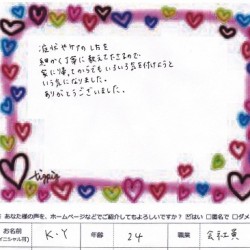 症状やケアのしかたを
細かく丁寧に教えて下さるので、
家に帰ってからでもいろいろ気を付けようと
いう気になりました。
ありがとうございました。
あなた様の声を、ホームページなどでご紹介してもよろしいですか? はい 匿名で ダメ
お名前 K・Y 年齢 24 職業 会社員
イニシャル可)